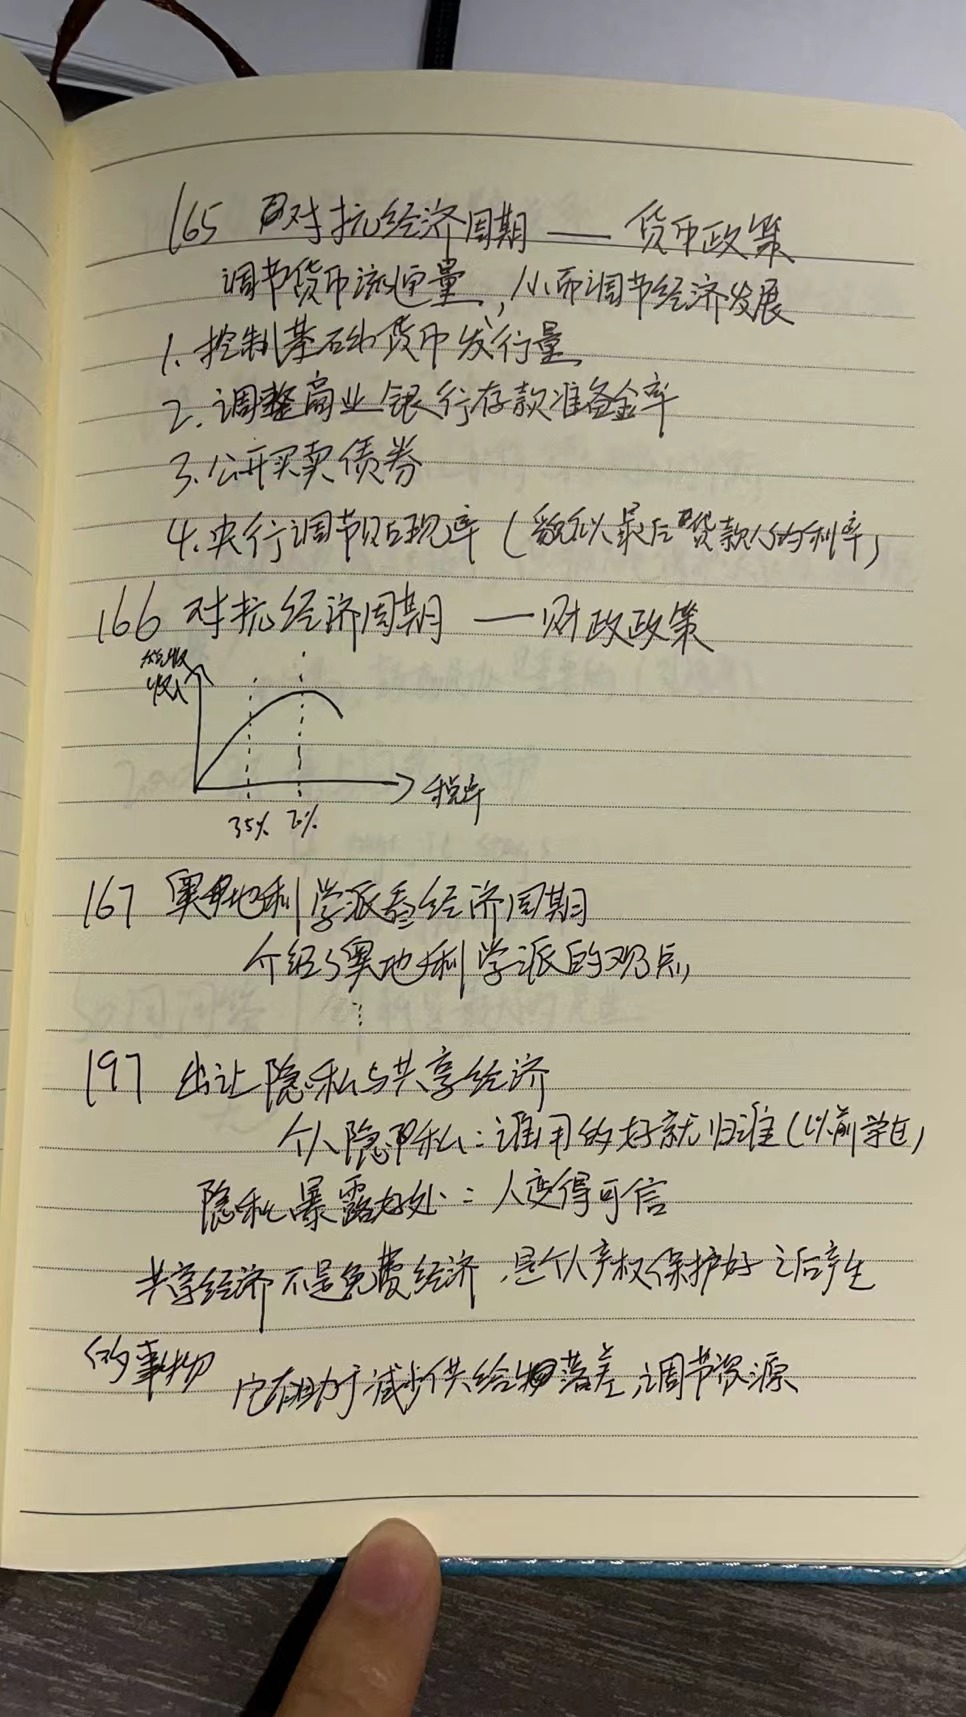 165 对抗经济周期 —— 货币政策
调节货币流通量，从而调节经济发展
1. 控制基础货币发行量
2. 调整商业银行存款准备金率
3. 公开买卖债券
4. 央行调节贴现率（貌似最后贷款人的利率）
166 对抗经济周期 —— 财政政策
收入
税率
35%
167 奥地利学派看经济周期
介绍了奥地利学派的观点
⋮
197 出让隐私与共享经济
个人隐私：谁用的好就归谁（以前学过）
隐私暴露好处：人变得可信
共享经济不是免费经济，是个人产权保护好之后产生
的事物
它有助于减少供给落差，调节资源